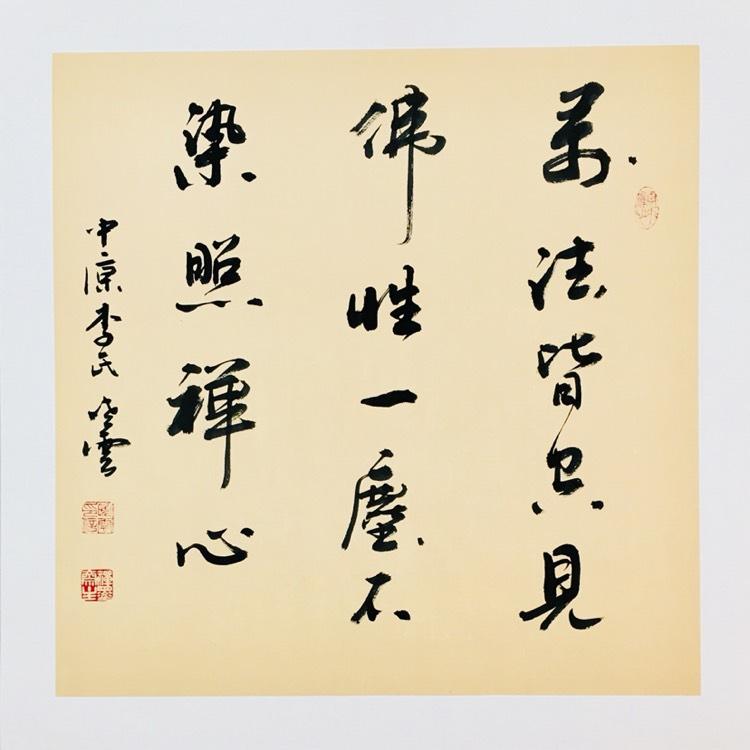 萬法皆空見
佛性一塵不
染照禪心
中源李氏曉雲